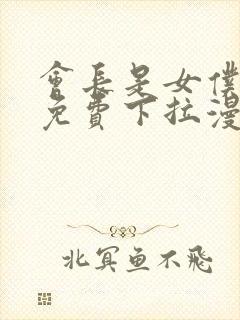 會長是女僕
免費下拉漫
北冥鱼不飛